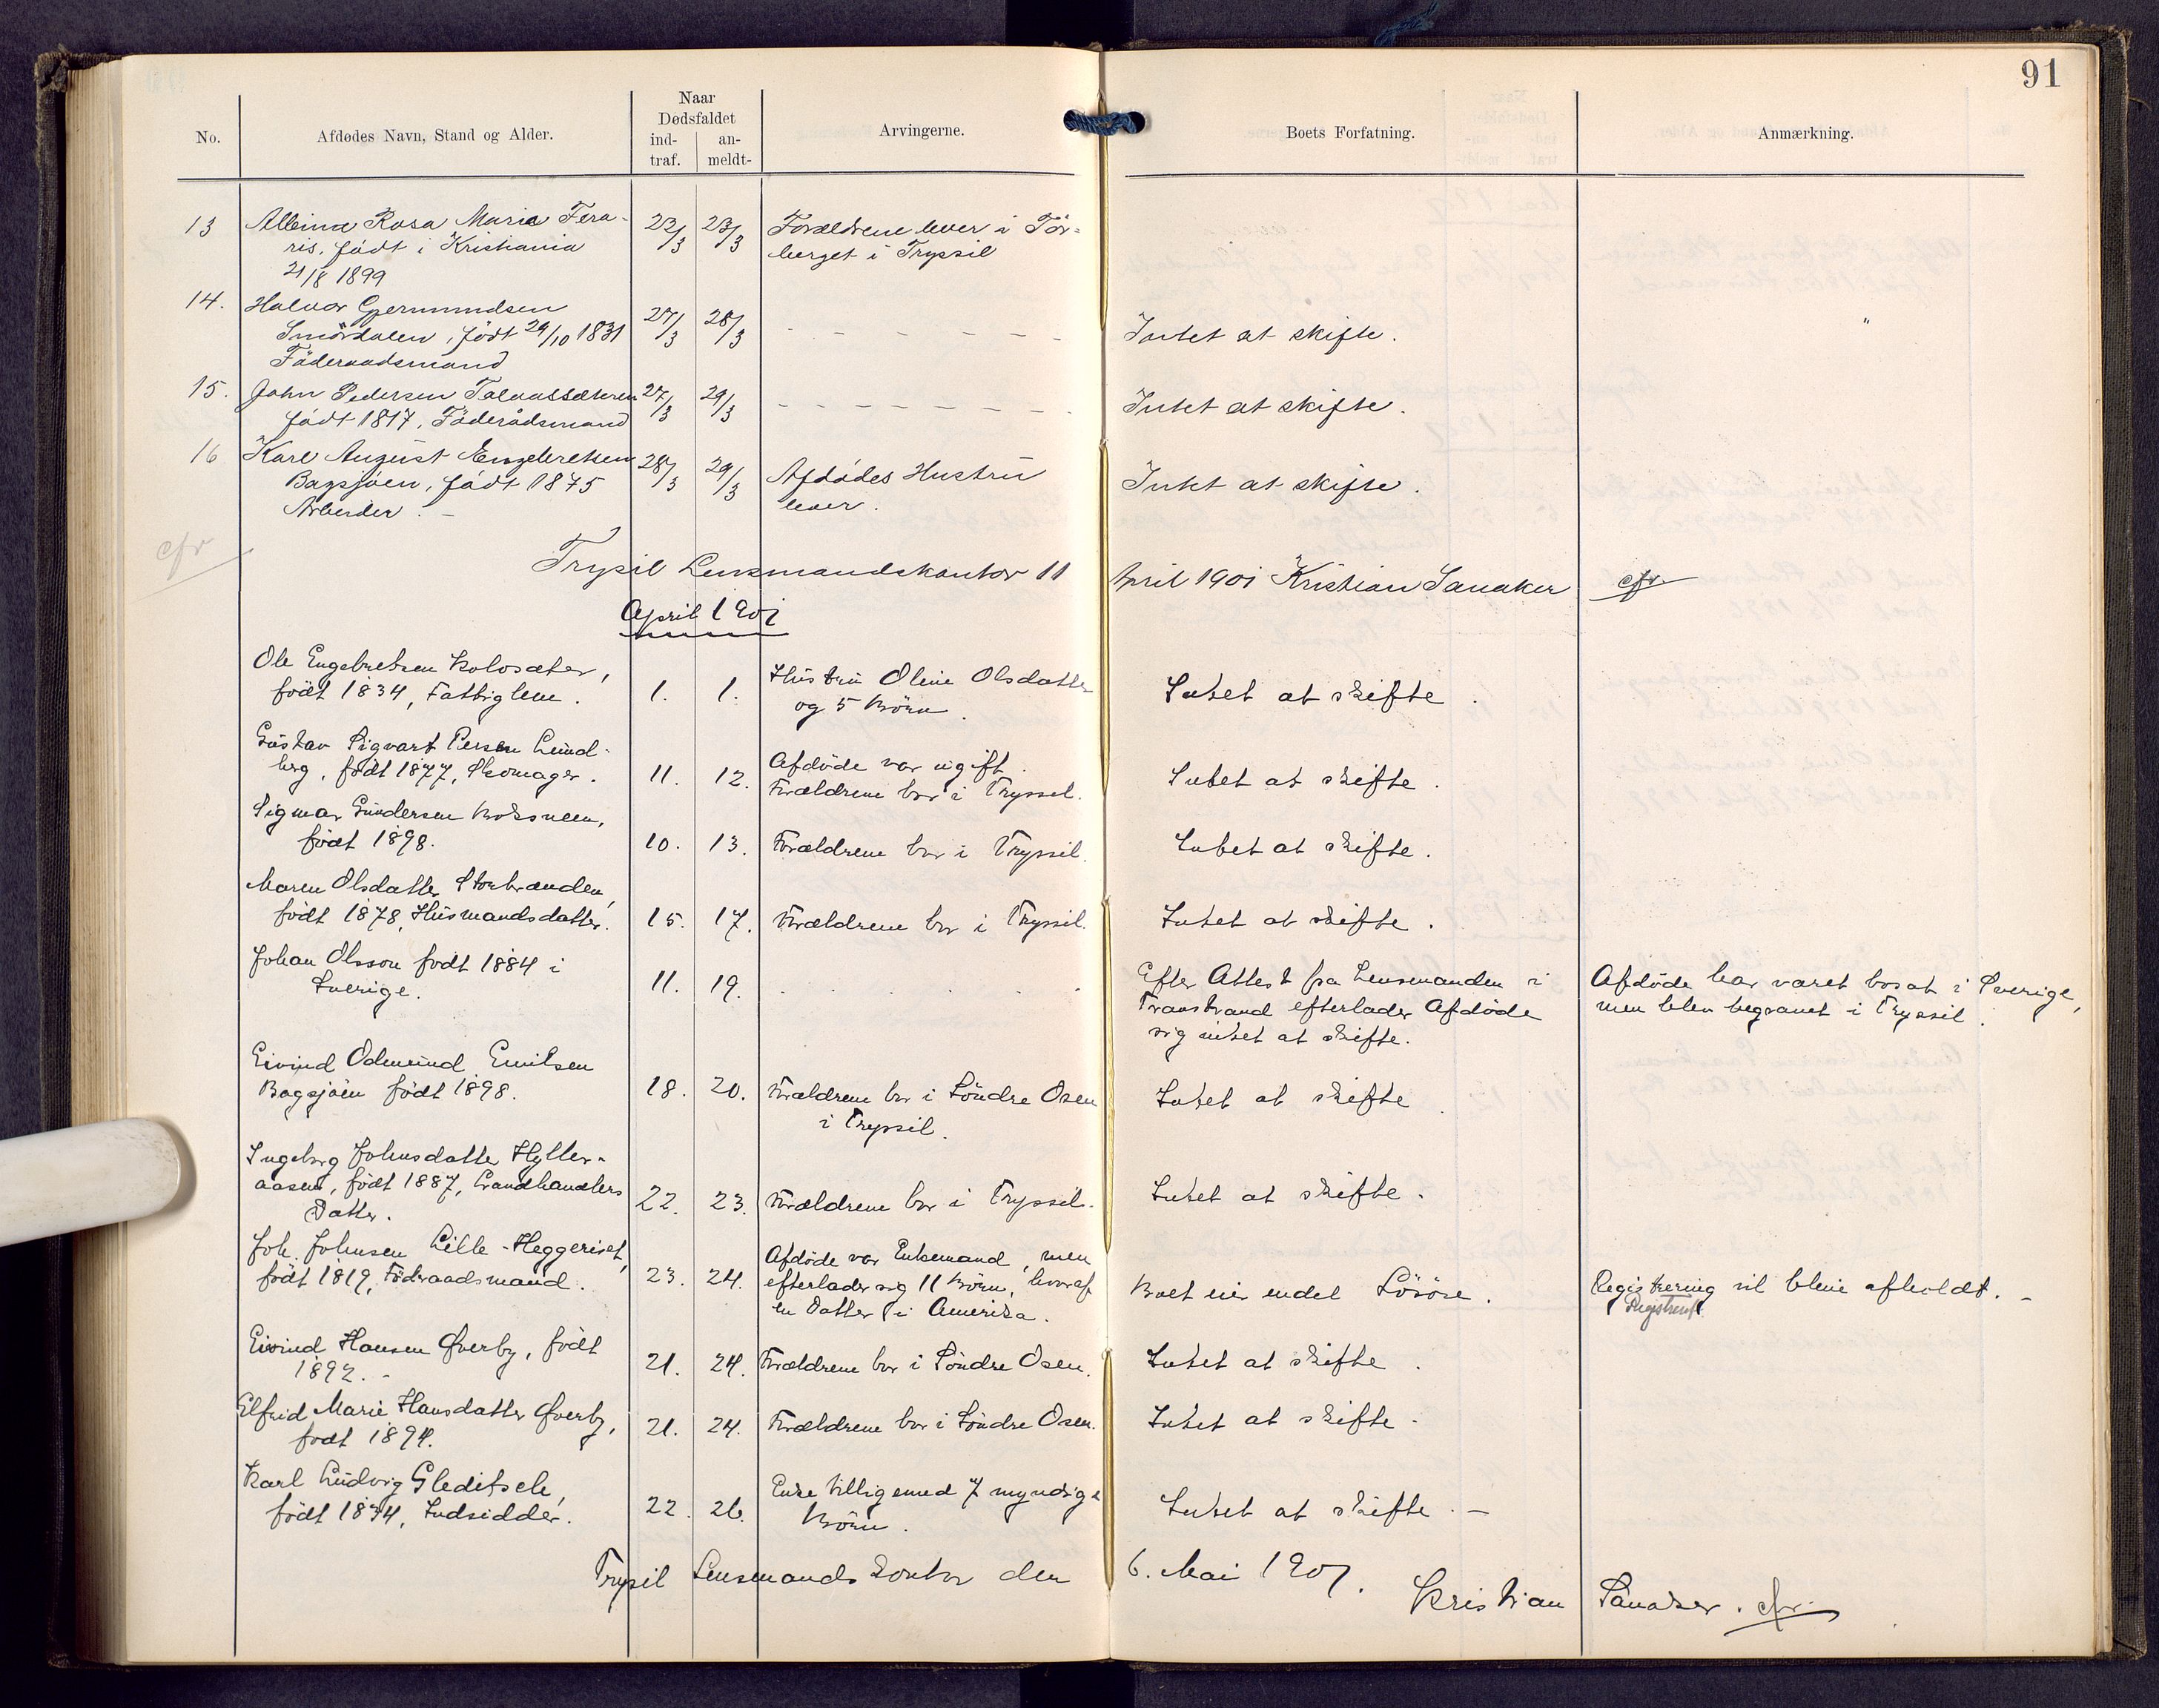 91
No.
Afdødes Navn, Stand og Alder.
Naar
Dødsfaldet
ind-
traf.
an-
meldt-
Arvingerne.
Boets Forfatning.
Anmærkning.
13 Albina Rosa Maria Fera-
ris, født i Kristiania
21/8 1899
23/3 23/3
Forældrene lever i Tör-
berget i Trysil
14. Halvor Gjermundsen
Smördalen, født 29/10 1831
Föderaadsmand
27/3 28/3
- - - - - -
Intet at skifte.
"
15. John Pedersen
født 1817, Föderådsmand
27/3 29/3
- - - - - - - -
Intet at skifte.
16 Karl August Engebretsen
Bagsjøen, født 1875
Arbeider. -
28/3 29/3
Afdødes Hustru
lever.
Intet at skifte.
cfr
Trysil Lensmandskontor 11 April 1901 Kristian Sanaker cfr.
April 1901
Ole Engebretsen Kolosæter,
født 1834, Fattiglem.
1. 1.
Hustru Oline Olsdatter
og 5 Börn.
Intet at skifte.
Gustav Sigvart Persen Lund-
berg, født 1877, Skomager.
11. 12.
Afdöde var ugift.
Forældrene bor i Tryssil.
Intet at skifte.
Sigmar Gundersen
födt 1898.
10. 13.
Forældrene bor i Tryssil.
Intet at skifte.
Maren Olsdatter Storbranden,
födt 1878, Husmandsdatter.
15. 17.
Forældrene bor i Tryssil.
Intet at skifte.
Johan Olsson født 1884 i
Sverige.
11. 19.
. . . . . .
Efter Attest fra Lensmanden i
Transtrand efterlader Afdöde
sig intet at skifte.
Afdöde har været bosat i Sverige,
men blev begravet i Tryssil.
Eivind Odmund Emilsen
Bagsjöen födt 1898.
18. 20.
Forældrene bor i Söndre Osen
i Tryssil.
Intet at skifte.
Ingeborg Johnsdatter Hyller-
aasen, födt 1887, Landhandlers
Datter.
22. 23.
Forældrene bor i Tryssil.
Intet at skifte.
Joh. Johnsen Lille-Heggeriset,
födt 1819, Föderaadsmand.
23. 24.
Afdöde var Enkemand, men
efterlader sig 11 Börn, hvoraf
en Datter i Amerika.
Boet eier endel Lösöre.
Registrering vil blive afholdt. -
Eivind Hansen Øverby, födt
1892. -
21. 24.
Forældrene bor i Söndre Osen.
Intet at skifte.
Elfrid Marie Hansdatter Øverby,
født 1894.
21. 24.
Forældrene bor i Söndre Osen.
Intet at skifte.
Karl Ludvig Gleditsch,
födt 1834, Indsidder.
22. 26.
Enke tilligemed 7 myndige
Börn.
Intet at skifte. -
Trysil Lensmandskontor den 6. Mai 1901.
Kristian Sanaker. cfr.